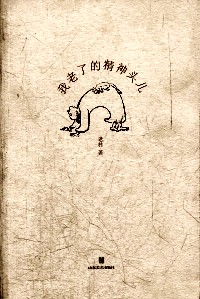 我老了的精神头儿
著